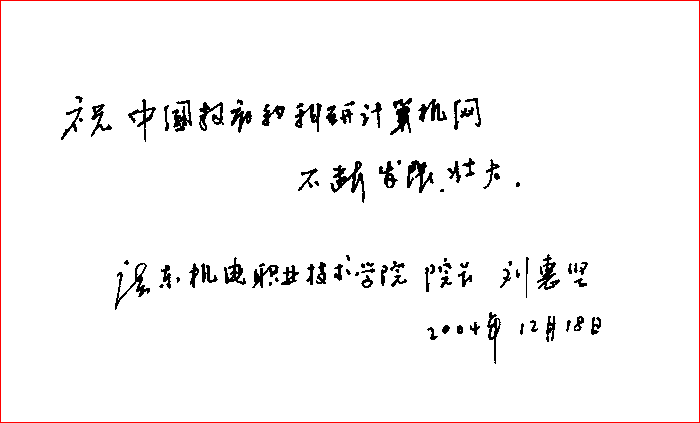 祝中国教育和科研计算机网
不断发展、壮大.
广东机电职业技术学院 院长 刘惠坚
2004年12月18日